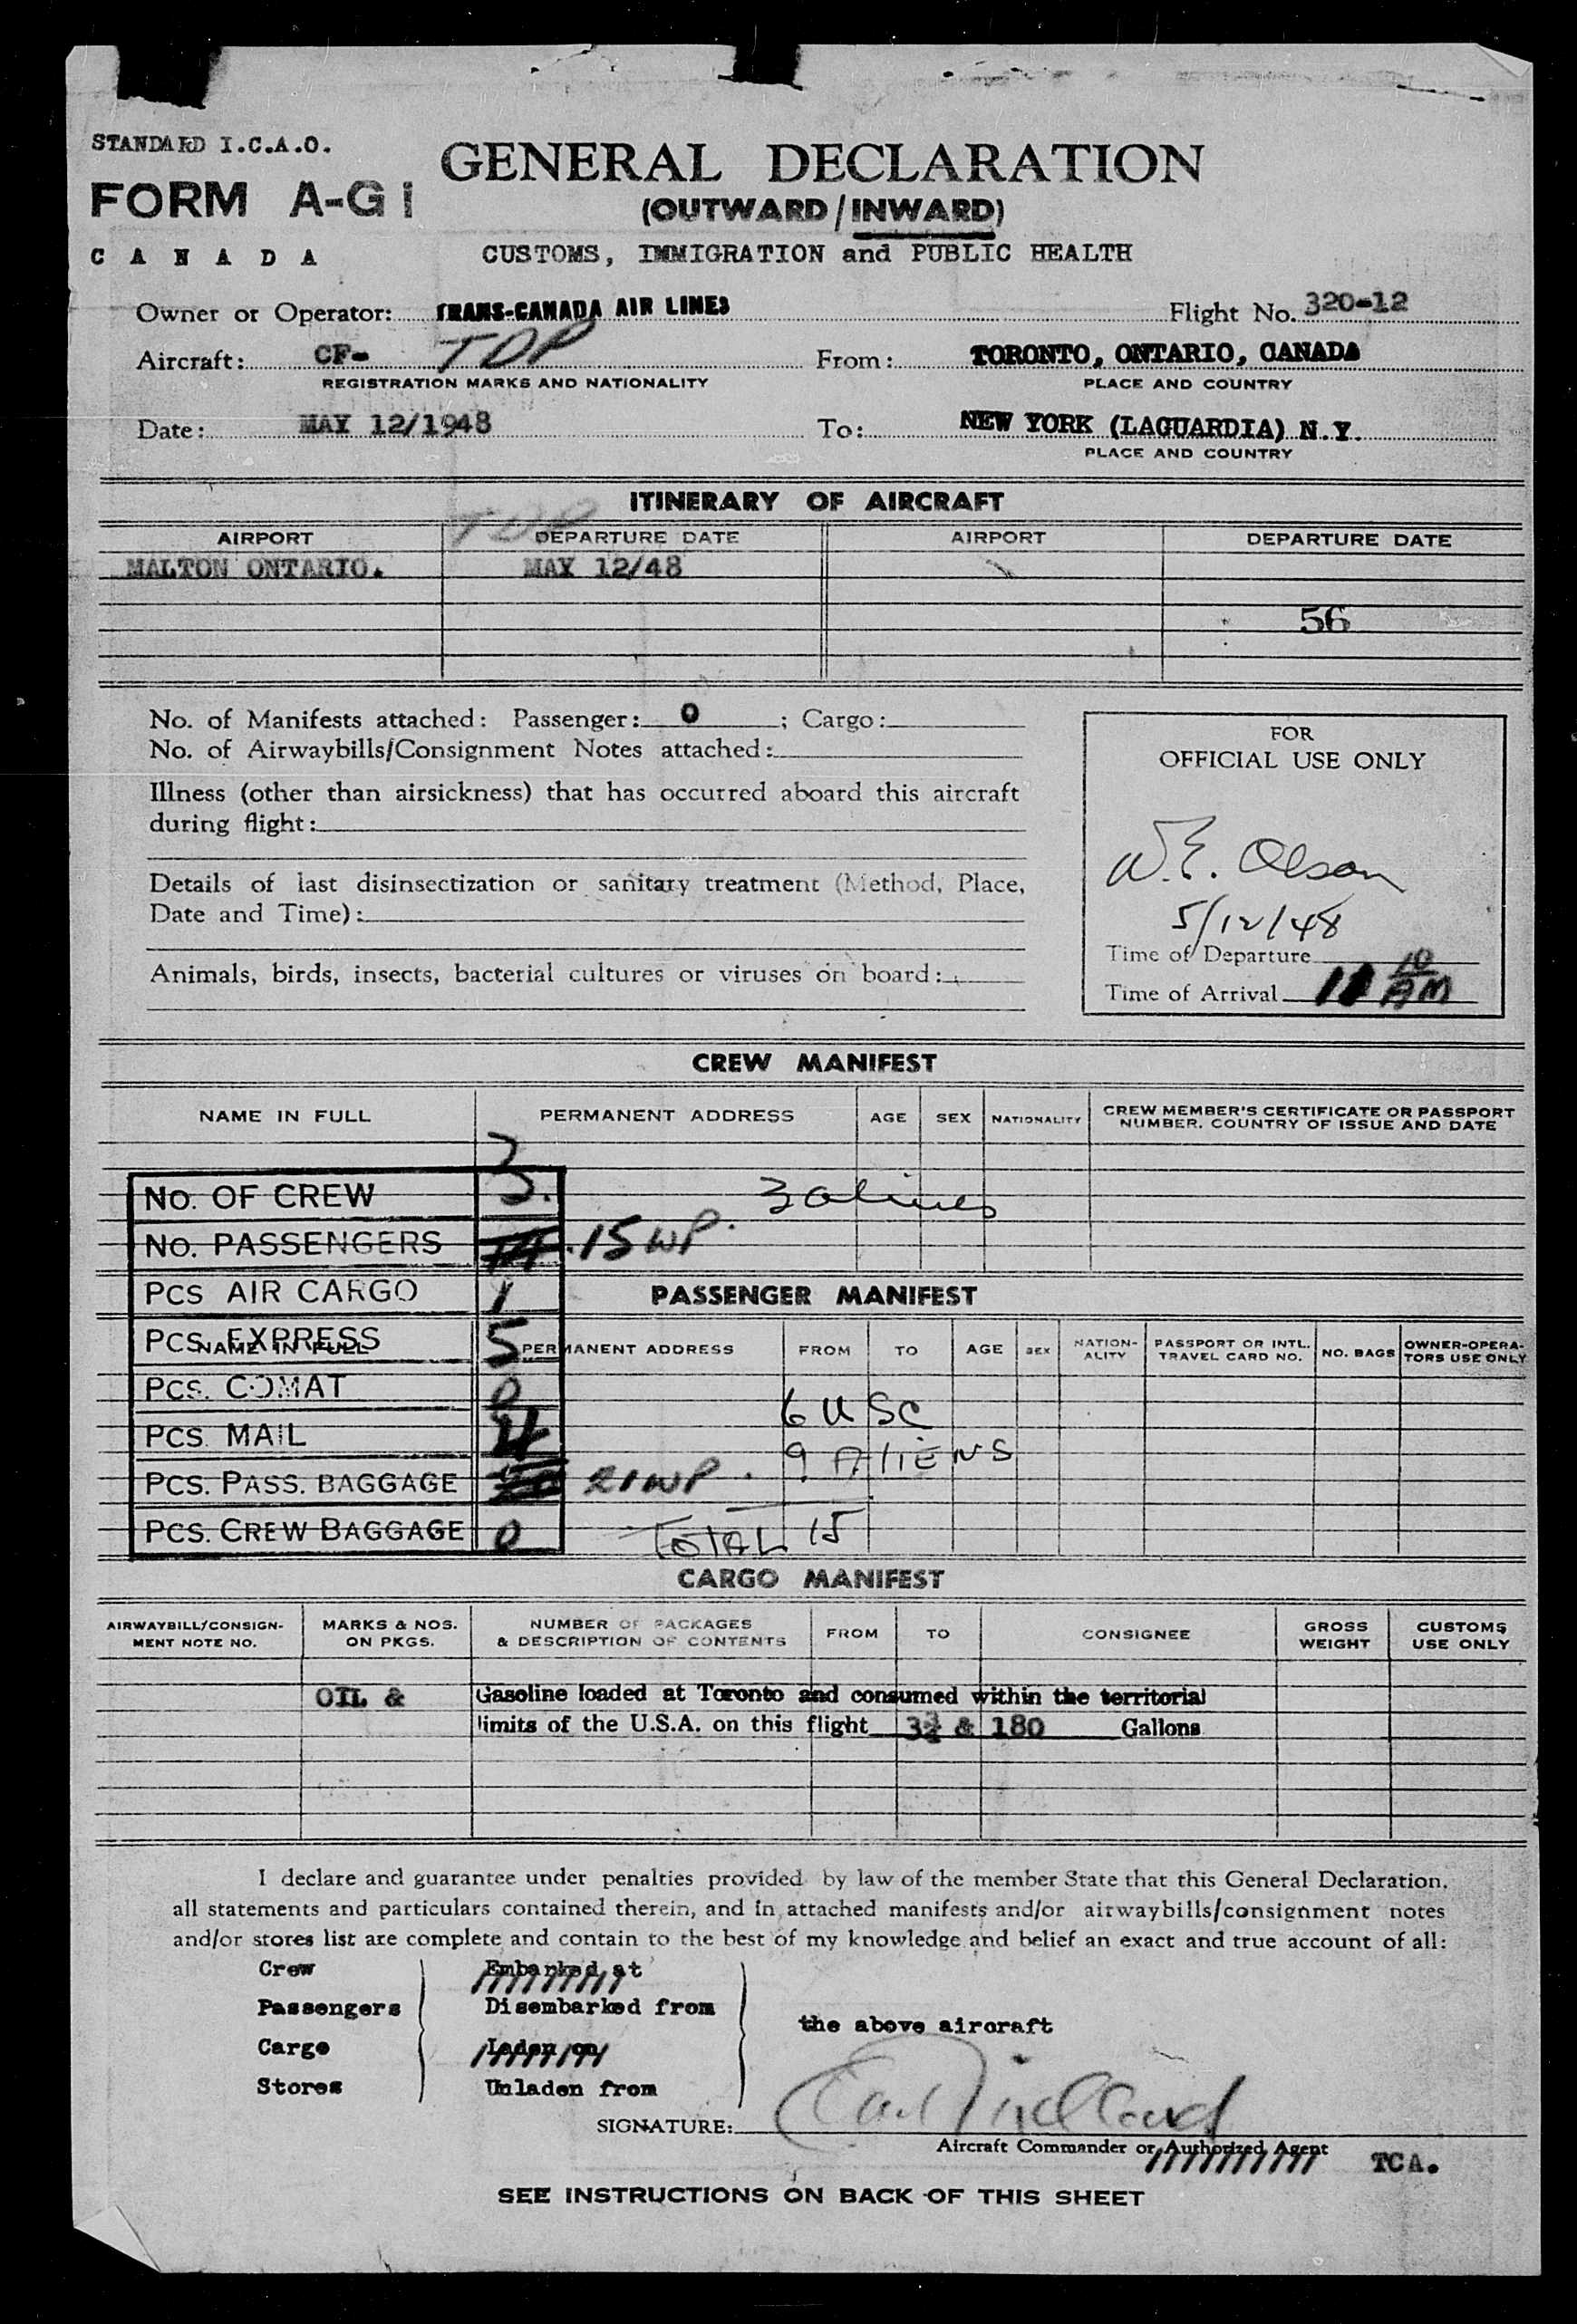 STANDARD I.C.A.O.
FORM A-G1
CANADA
GENERAL DECLARATION
(OUTWARD/INWARD)
CUSTOMS, IMMIGRATION and PUBLIC HEALTH
Owner or Operator: TRANS-CANADA AIR LINES Flight No. 320-12
Aircraft: CF- TDP From: TORONTO, ONTARIO, CANADA
REGISTRATION MARKS AND NATIONALITY PLACE AND COUNTRY
Date: MAY 12/1948 To: NEW YORK (LAGUARDIA) N.Y.
PLACE AND COUNTRY
ITINERARY OF AIRCRAFT
TDP
AIRPORT DEPARTURE DATE AIRPORT DEPARTURE DATE
MALTON ONTARIO. MAY 12/48
56
No. of Manifests attached: Passenger: 0 ; Cargo:
No. of Airwaybills/Consignment Notes attached:
Illness (other than airsickness) that has occurred aboard this aircraft
during flight:
Details of last disinsectization or sanitary treatment (Method, Place,
Date and Time):
Animals, birds, insects, bacterial cultures or viruses on board:
FOR
OFFICIAL USE ONLY
W.E. Olson
5/12/48
Time of Departure
Time of Arrival 11 10 AM
CREW MANIFEST
NAME IN FULL PERMANENT ADDRESS AGE SEX NATIONALITY CREW MEMBER'S CERTIFICATE OR PASSPORT
NUMBER. COUNTRY OF ISSUE AND DATE
3
No. OF CREW 3. 3 aliens
No. PASSENGERS 14 .15 WP.
PCS AIR CARGO 1
PASSENGER MANIFEST
PCS. EXPRESS 5
NAME IN FULL PERMANENT ADDRESS FROM TO AGE SEX NATION-ALITY PASSPORT OR INTL. TRAVEL CARD NO. NO. BAGS OWNER-OPERA-TORS USE ONLY
PCS. COMAT 0 6 USC
PCS. MAIL 4 9 ALIENS
PCS. PASS. BAGGAGE 21 WP.
PCS. CREW BAGGAGE 0 TOTAL 15
CARGO MANIFEST
AIRWAYBILL/CONSIGN-MENT NOTE NO. MARKS & NOS. ON PKGS. NUMBER OF PACKAGES & DESCRIPTION OF CONTENTS FROM TO CONSIGNEE GROSS WEIGHT CUSTOMS USE ONLY
OIL & Gasoline loaded at Toronto and consumed within the territorial
limits of the U.S.A. on this flight 3¾ & 180 Gallons
I declare and guarantee under penalties provided by law of the member State that this General Declaration,
all statements and particulars contained therein, and in attached manifests and/or airwaybills/consignment notes
and/or stores list are complete and contain to the best of my knowledge and belief an exact and true account of all:
Crew Embarked at
Passengers Disembarked from
the above aircraft
Cargo Laden on
Stores Unladen from
SIGNATURE:
Aircraft Commander or Authorized Agent TCA.
SEE INSTRUCTIONS ON BACK OF THIS SHEET